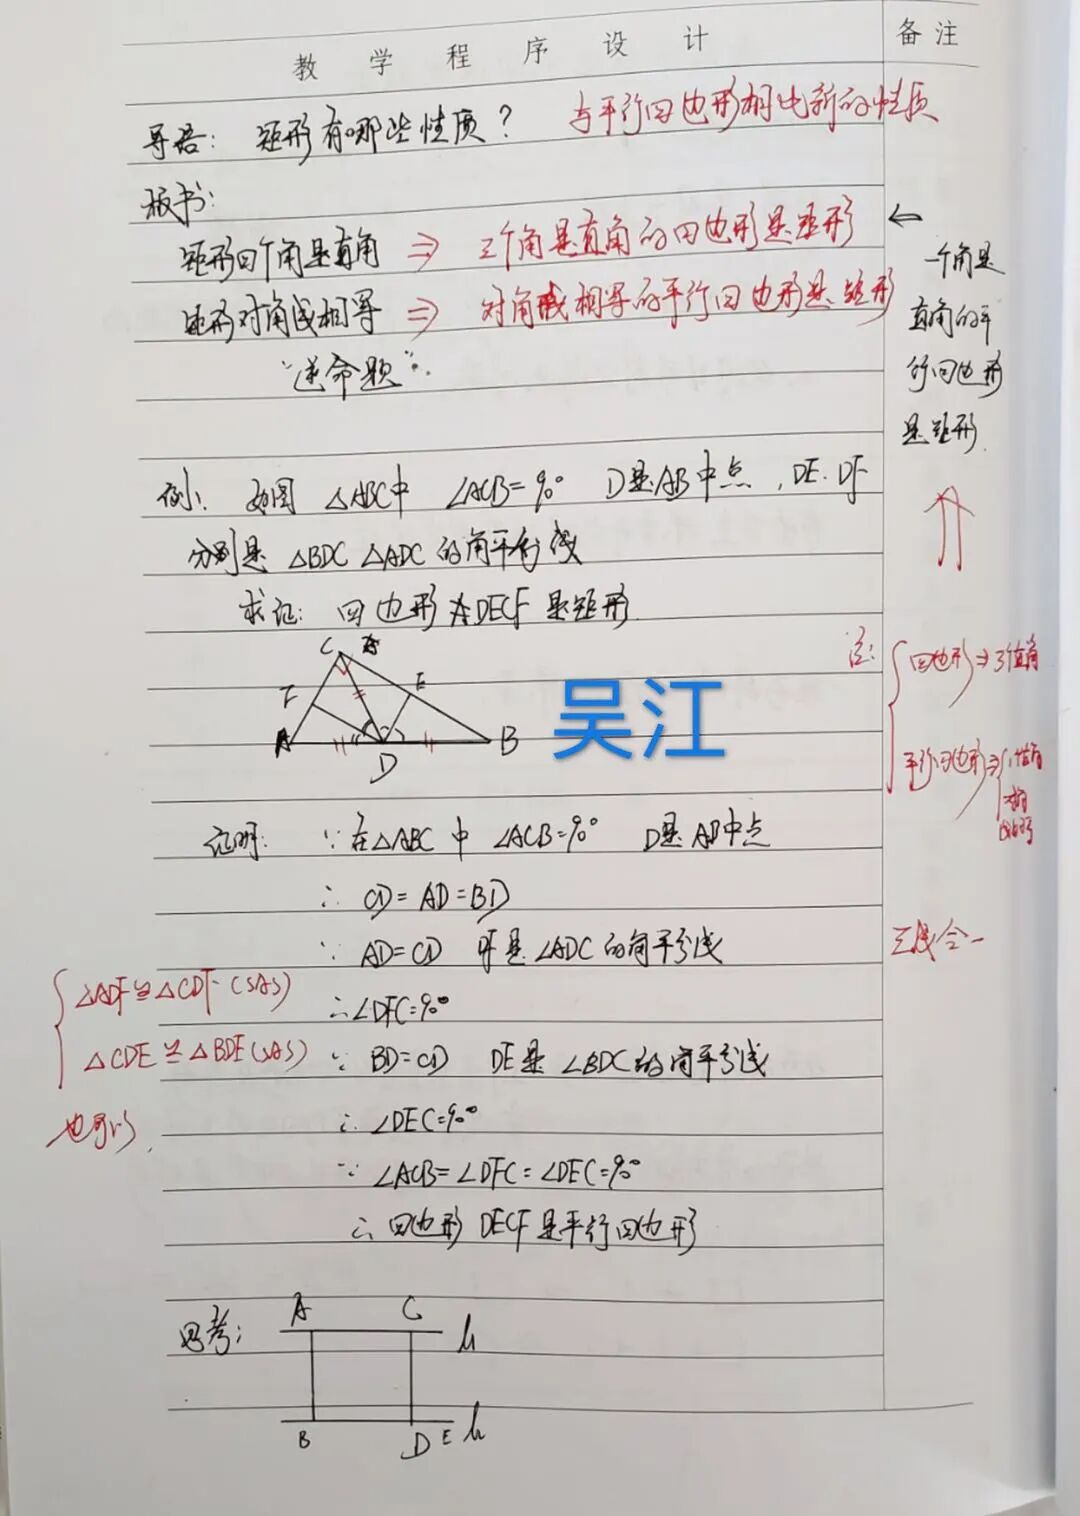 教学程序设计
备注
导语：矩形有哪些性质？ 与平行四边形相比新的性质
板书：
矩形四个角是直角 ⇒ 三个角是直角的四边形是矩形
←
矩形对角线相等 ⇒ 对角线相等的平行四边形是矩形
"逆命题".
一个角是
直角的平
行四边形
是矩形.
例1. 如图 △ABC中 ∠ACB=90° D是AB中点, DE. DF
分别是 △BDC △ADC 的角平分线
求证: 四边形DECF是矩形.
C
F
E
A
D
B
吴江
注:
四边形⇒3个直角
平行四边形⇒
证明: ∵在△ABC中 ∠ACB=90° D是AB中点
∴ CD=AD=BD
∵ AD=CD DF是∠ADC的角平分线
三线合一
△ADF≌△CDF (SAS)
∴∠DFC=90°
△CDE≌△BDE(SAS)
∵ BD=CD DE是∠BDC的角平分线
也可以.
∴ ∠DEC=90°
∵ ∠ACB=∠DFC=∠DEC=90°
∴ 四边形DECF是平行四边形
思考:
A
C
B
D
E